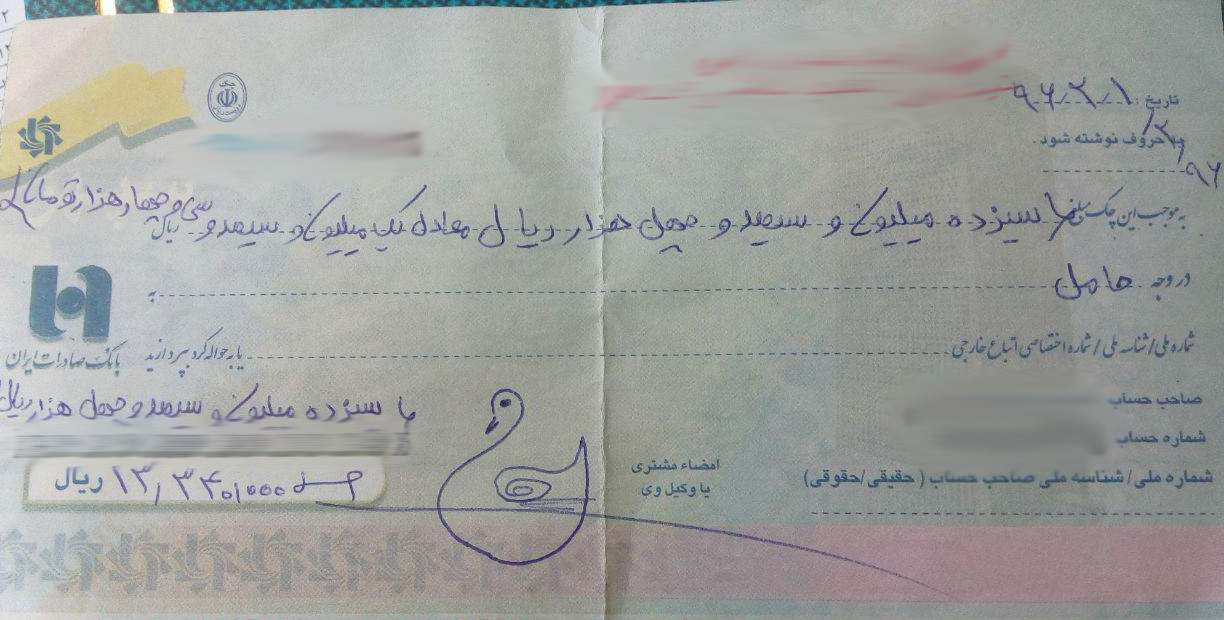 تاریخ : ۹۶/۳/۱
به حروف نوشته شود .
۹۶
به موجب این چک مبلغ سیزده میلیون و سیصد و چهل هزار ریال معادل یک میلیون و سیصد و سی و چهار هزار تومان ریال
در وجه حامل به
شماره ملی / شناسه ملی / شماره اختصاصی اتباع خارجی یا به حواله کرد بپردازید
بانک صادرات ایران
صاحب حساب
سیزده میلیون و سیصد و چهل هزار ریال
شماره حساب
امضاء مشتری
یا وکیل وی
شماره ملی/ شناسه ملی صاحب حساب ( حقیقی/حقوقی)
۱۳,۳۴۰,۰۰۰ ریال